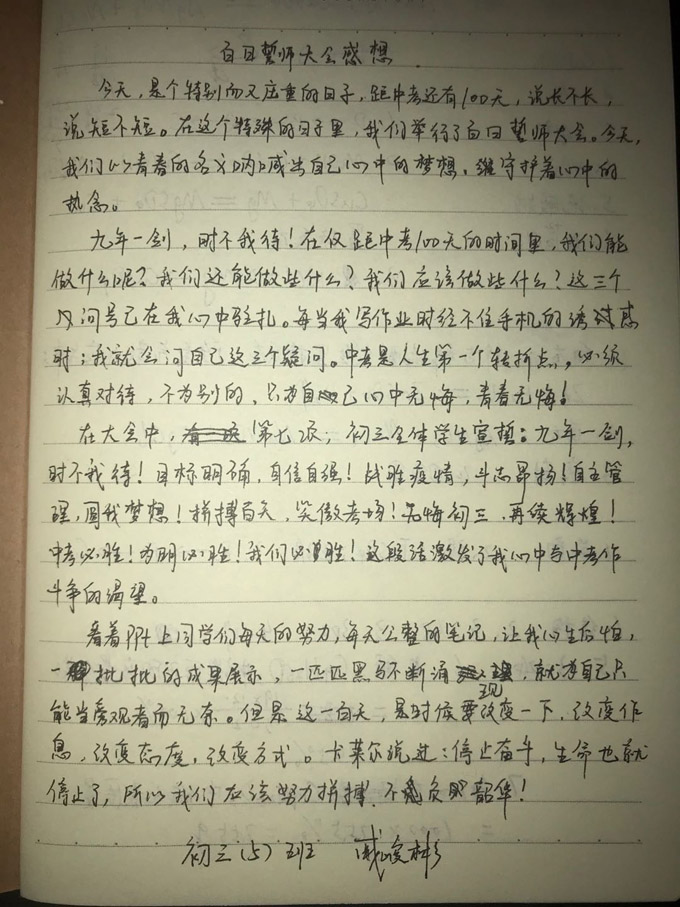 百日誓师大会感想
今天，是个特别而又庄重的日子，距中考还有100天，说长不长，
说短不短。在这个特殊的日子里，我们举行了百日誓师大会。今天，
我们以青春的名义呐喊出自己心中的梦想，继守护着心中的
热念。
九年一剑，时不我待！在仅距中考100天的时间里，我们能
做什么呢？我们还能做些什么？我们应该做些什么？这三个
问号已在我心中驻扎。每当我写作业时经不住手机的诱惑
时；我就会问自己这三个疑问。中考是人生第一个转折点，必须
认真对待，不为别的，只为自己心中无悔，青春无悔！
在大会中，第七项，初三全体学生宣誓：九年一剑，
时不我待！目标明确，自信自强！战胜疫情，斗志昂扬！自主管
理，圆我梦想！拼搏百天，笑傲考场！无悔初三，再续辉煌！
中考必胜！为明必胜！我们必胜！这段话激发了我心中与中考作
斗争的渴望。
看着PPt上同学们每天的努力，每天公整的笔记，让我心生后怕，
一批批的成果展示，一匹匹黑马不断涌现，就有自己只
能当旁观者而无奈。但是这一百天，是时候要改变一下，改变作
息，改变态度，改变方式。卡莱尔说过：停止奋斗，生命也就
停止了，所以我们应该努力拼搏，不负韶华！
初三（5）班 戚俊彬